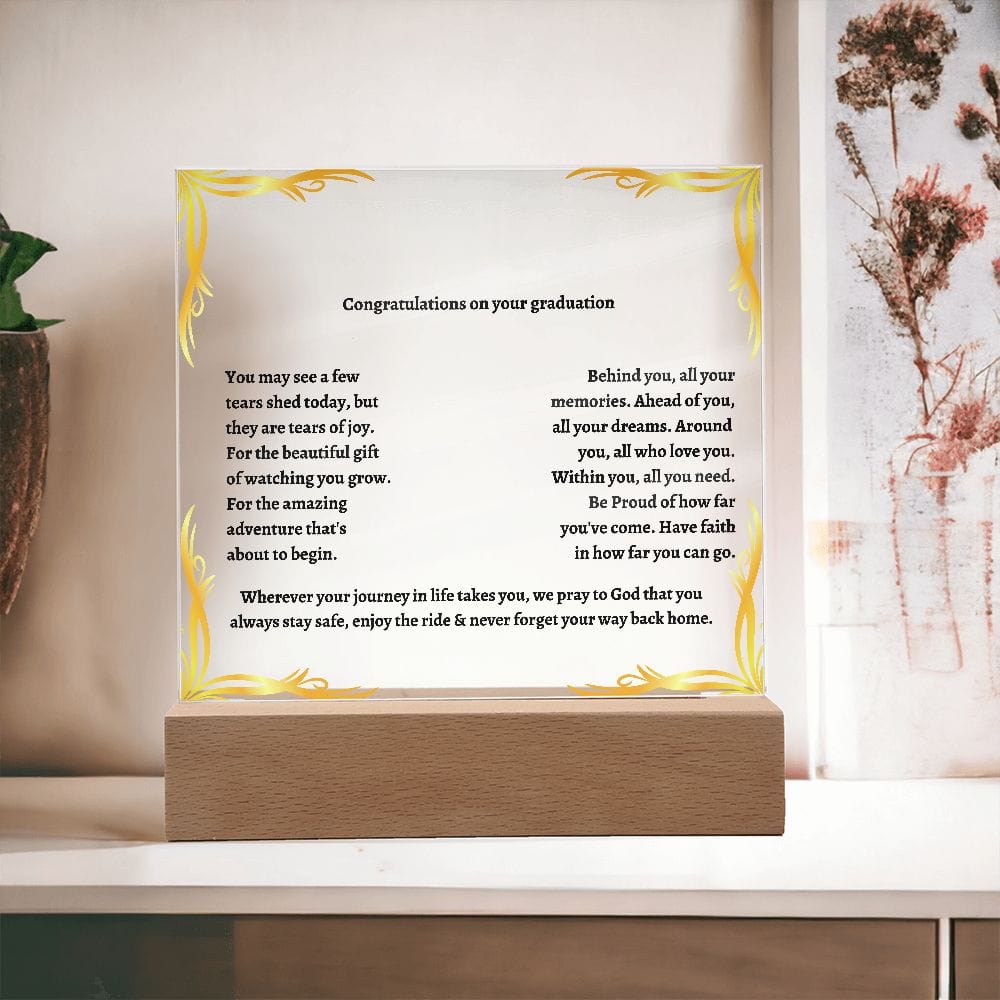 Congratulations on your graduation
You may see a few
tears shed today, but
they are tears of joy.
For the beautiful gift
of watching you grow.
For the amazing
adventure that's
about to begin.
Behind you, all your
memories. Ahead of you,
all your dreams. Around
you, all who love you.
Within you, all you need.
Be Proud of how far
you've come. Have faith
in how far you can go.
Wherever your journey in life takes you, we pray to God that you
always stay safe, enjoy the ride & never forget your way back home.